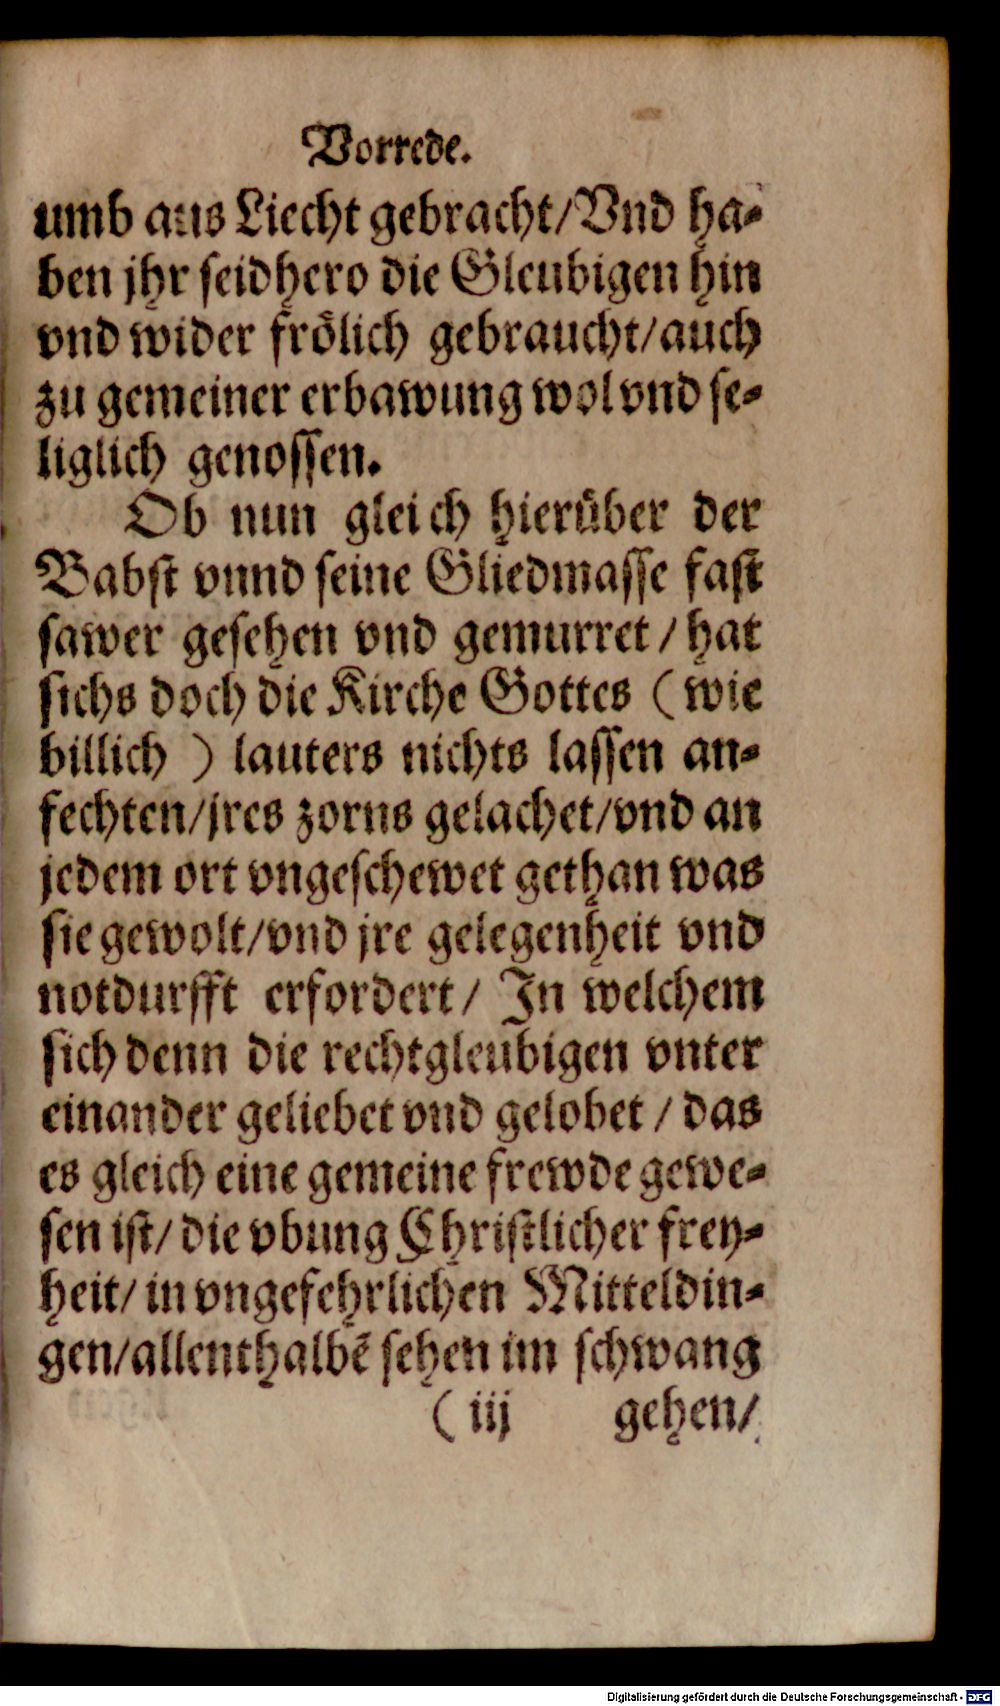 Vorrede.
umb ans Liecht gebracht/Vnd ha-
ben jhr seidhero die Gleubigen hin
vnd wider frölich gebraucht/auch
zu gemeiner erbawung wol vnd se-
liglich genossen.
Ob nun gleich hierüber der
Babst vnnd seine Gliedmasse fast
sawer gesehen vnd gemurret / hat
sichs doch die Kirche Gottes (wie
billich ) lauters nichts lassen an-
fechten/jres zorns gelachet/vnd an
jedem ort vngeschewet gethan was
sie gewolt/vnd jre gelegenheit vnd
notdurfft erfordert/ In welchem
sich denn die rechtgleubigen vnter
einander geliebet vnd gelobet / das
es gleich eine gemeine frewde gewe-
sen ist/ die vbung Christlicher frey-
heit/ in vngefehrlichen Mitteldin-
gen/allenthalbē sehen im schwang
( iij gehen/
Digitalisierung gefördert durch die Deutsche Forschungsgemeinschaft - DFG